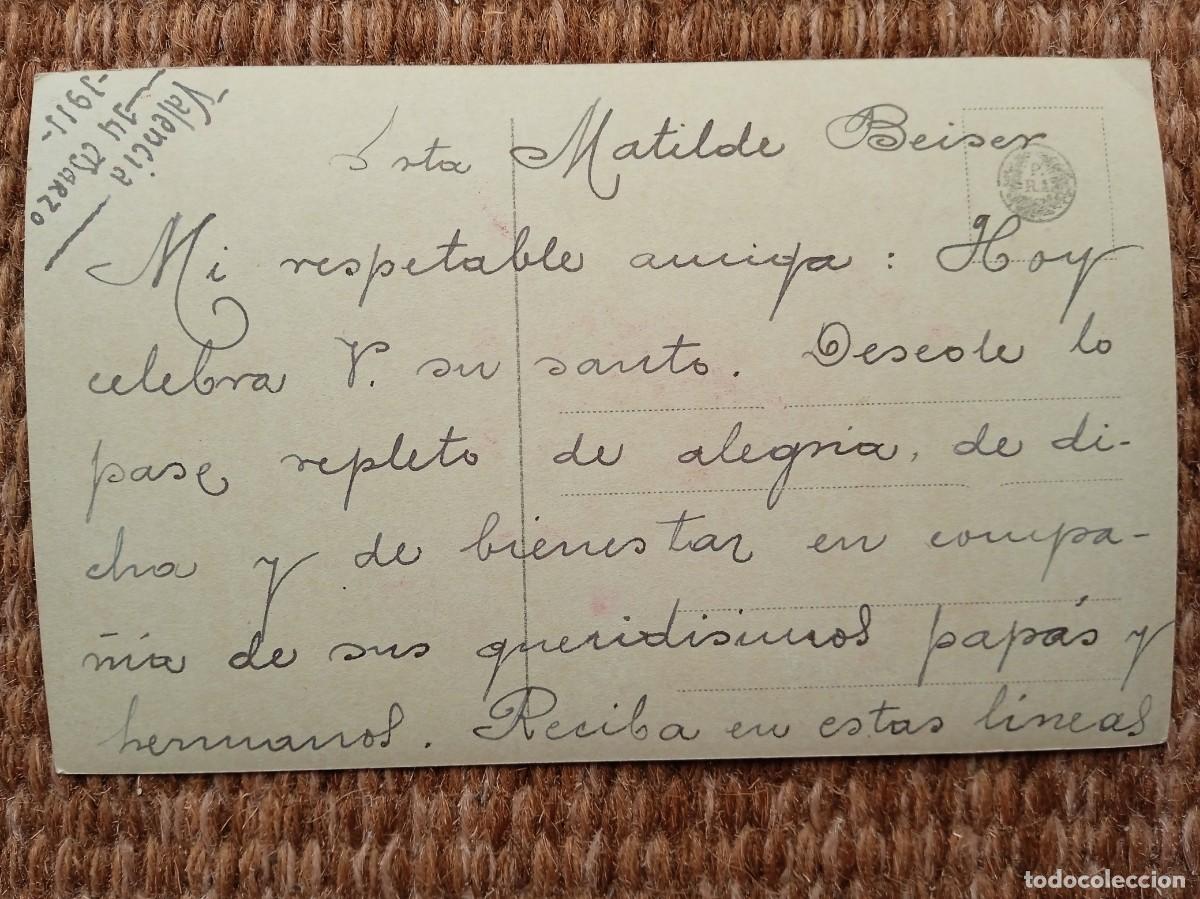 Valencia
14 Marzo
-1911-
Srta Matilde Beiser
P.
R.1.
Mi respetable amiga : Hoy
celebra V. su santo. Deseole lo
pase repleto de alegria, de di-
cha y de bienestar en compa-
ñia de sus queridisimos papás y
hermanos. Reciba en estas líneas
todocoleccion